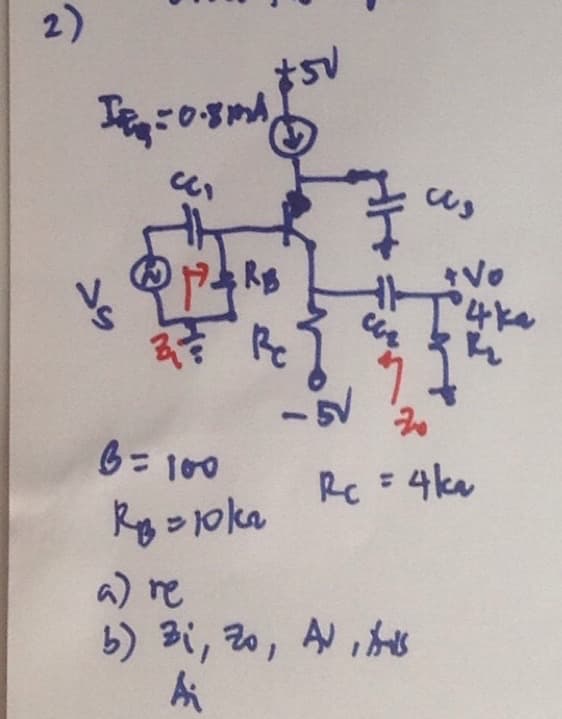 2)
+5V
IEQ = 0.8mA
CC1
CC3
VS
RB
+Vo
4kΩ
CC2
RL
Zi
RC
-5V
Zo
β = 100
RC = 4kΩ
RB = 10kΩ
a) re
b) Zi, Zo, AV,
Ai